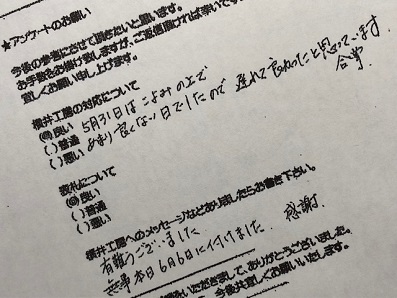 ★アンケートのお願い
今後の参考にさせて頂きたいと思います。
お手数をお掛け致しますが、ご返信頂ければ幸いです
宜しくお願い申し上げます。
横井工房の対応について
(◎)良い 5月31日はこよみの上で
( )普通 あまり良くない日でしたので 遅れて良かったと思っています
( )悪い
合掌
表札について
(◎)良い
( )普通
( )悪い
横井工房へのメッセージなどありましたらお書き下さい。
有難うございました
無事本日6月6日に付けました. 感謝.
いただきまして、ありがとうございました。
今後共宜しくお願いいたします。